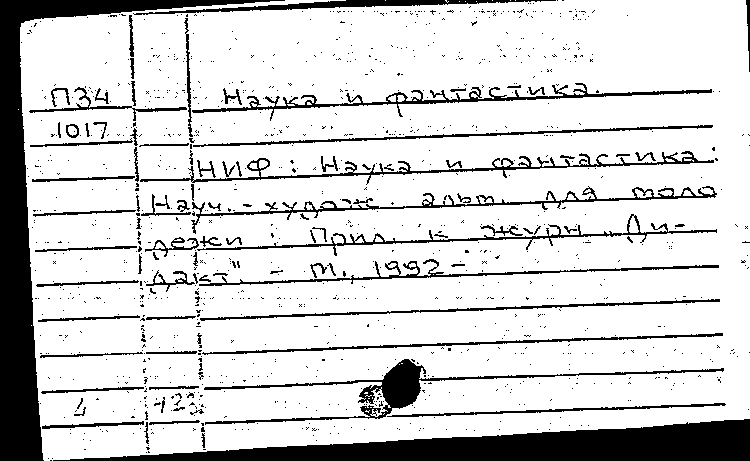 П34 Наука и фантастика.
1017
НИФ: Наука и фантастика:
Науч.-худож. альм. для моло
дежи: Прил. к журн. „Ди-
дакт". - М., 1992-
4 423